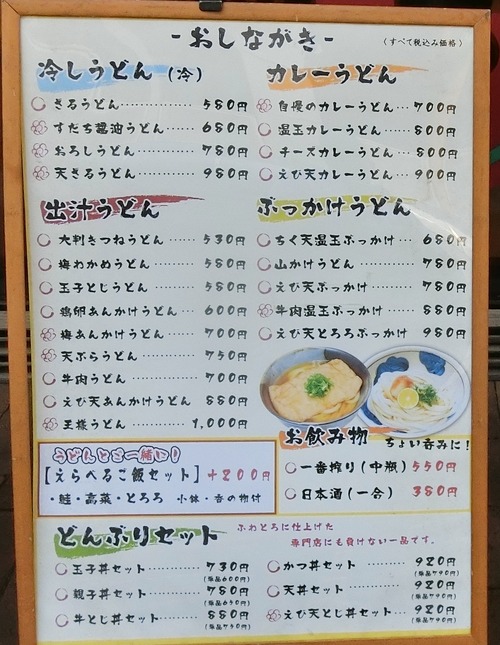 -おしながき-
(すべて税込み価格)
冷しうどん (冷)
ざるうどん………… 580円
すだち醤油うどん… 680円
おろしうどん……… 780円
天ざるうどん……… 980円
カレーうどん
自慢のカレーうどん… 700円
温玉カレーうどん… 800円
チーズカレーうどん… 800円
えび天カレーうどん… 900円
出汁うどん
大判きつねうどん…… 530円
梅わかめうどん…… 580円
玉子とじうどん…… 580円
鶏卵あんかけうどん… 600円
梅あんかけうどん… 700円
天ぷらうどん……… 750円
牛肉うどん………… 700円
えび天あんかけうどん 880円
王様うどん……… 1,000円
ぶっかけうどん
ちく天温玉ぶっかけ… 680円
山かけうどん……… 780円
えび天ぶっかけ…… 780円
牛肉温玉ぶっかけ… 880円
えび天とろろぶっかけ 980円
うどんとご一緒に!
[えらべるご飯セット] +200円
・鮭・高菜・とろろ 小鉢・香の物付
お飲み物 ちょい呑みに!
一番搾り(中瓶) 550円
日本酒(一合) 380円
どんぶりセット
ふわとろに仕上げた
専門店にも負けない一品です。
玉子丼セット……… 730円
(単品600円)
親子丼セット……… 780円
(単品650円)
牛とじ丼セット…… 880円
(単品750円)
かつ丼セット……… 920円
(単品790円)
天丼セット………… 920円
(単品790円)
えび天とじ丼セット… 920円
(単品790円)